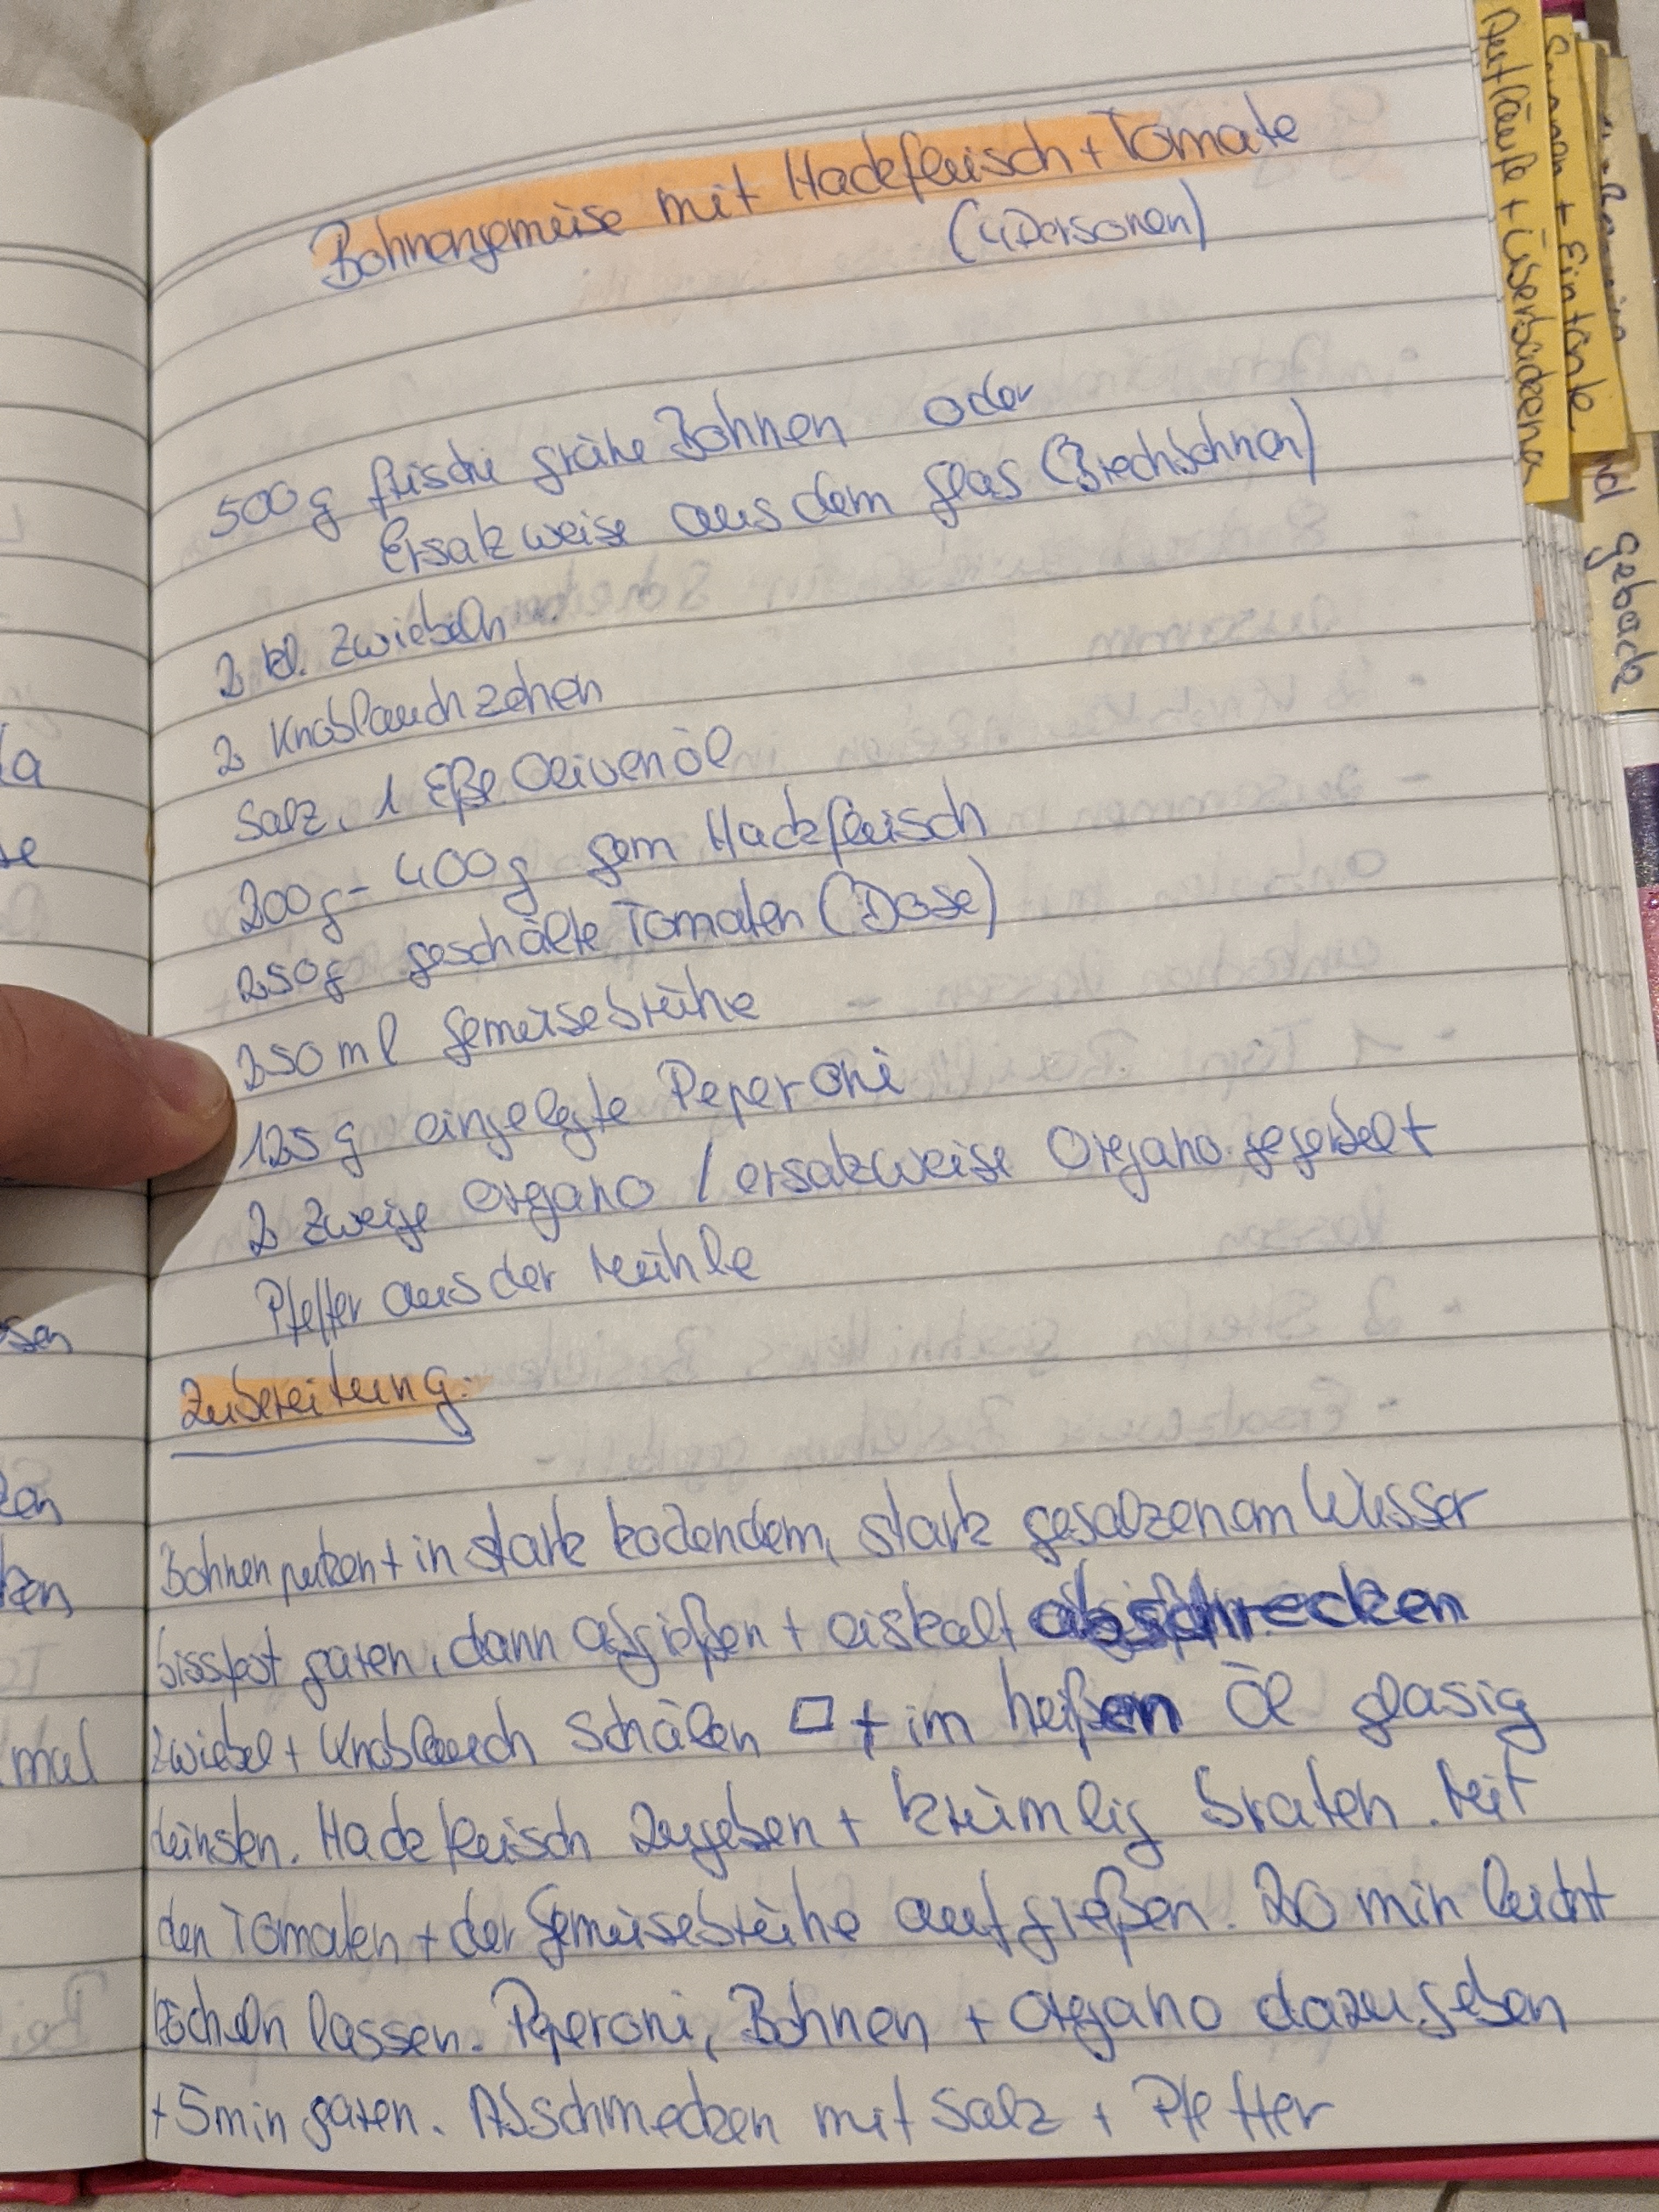 Bohnengemüse mit Hackfleisch + Tomate
(4 Personen)
500 g frische grüne Bohnen oder
Ersatzweise aus dem Glas (Brechbohnen)
2 kl. Zwiebeln
2 Knoblauchzehen
Salz, 1 Eßl. Olivenöl
200g - 400g gem Hackfleisch
250g geschälte Tomaten (Dose)
250 ml Gemüsebrühe
125 g eingelegte Peperoni
2 Zweige Oregano / ersatzweise Oregano gerebelt
Pfeffer aus der Mühle
Zubereitung:
Bohnen putzen + in stark kochendem, stark gesalzenem Wasser
bissfest garen, dann abgießen + eiskalt abschrecken
Zwiebel + Knoblauch schälen + im heißen Öl glasig
dünsten. Hackfleisch zugeben + krümelig braten. Mit
den Tomaten + der Gemüsebrühe aufgießen. 20 min leicht
köcheln lassen. Peperoni, Bohnen + Oregano dazugeben
+ 5 min garen. Abschmecken mit Salz + Pfeffer
Aufläufe + Überbackena
Suppen + Eintöpfe
nd Gebäck
mal